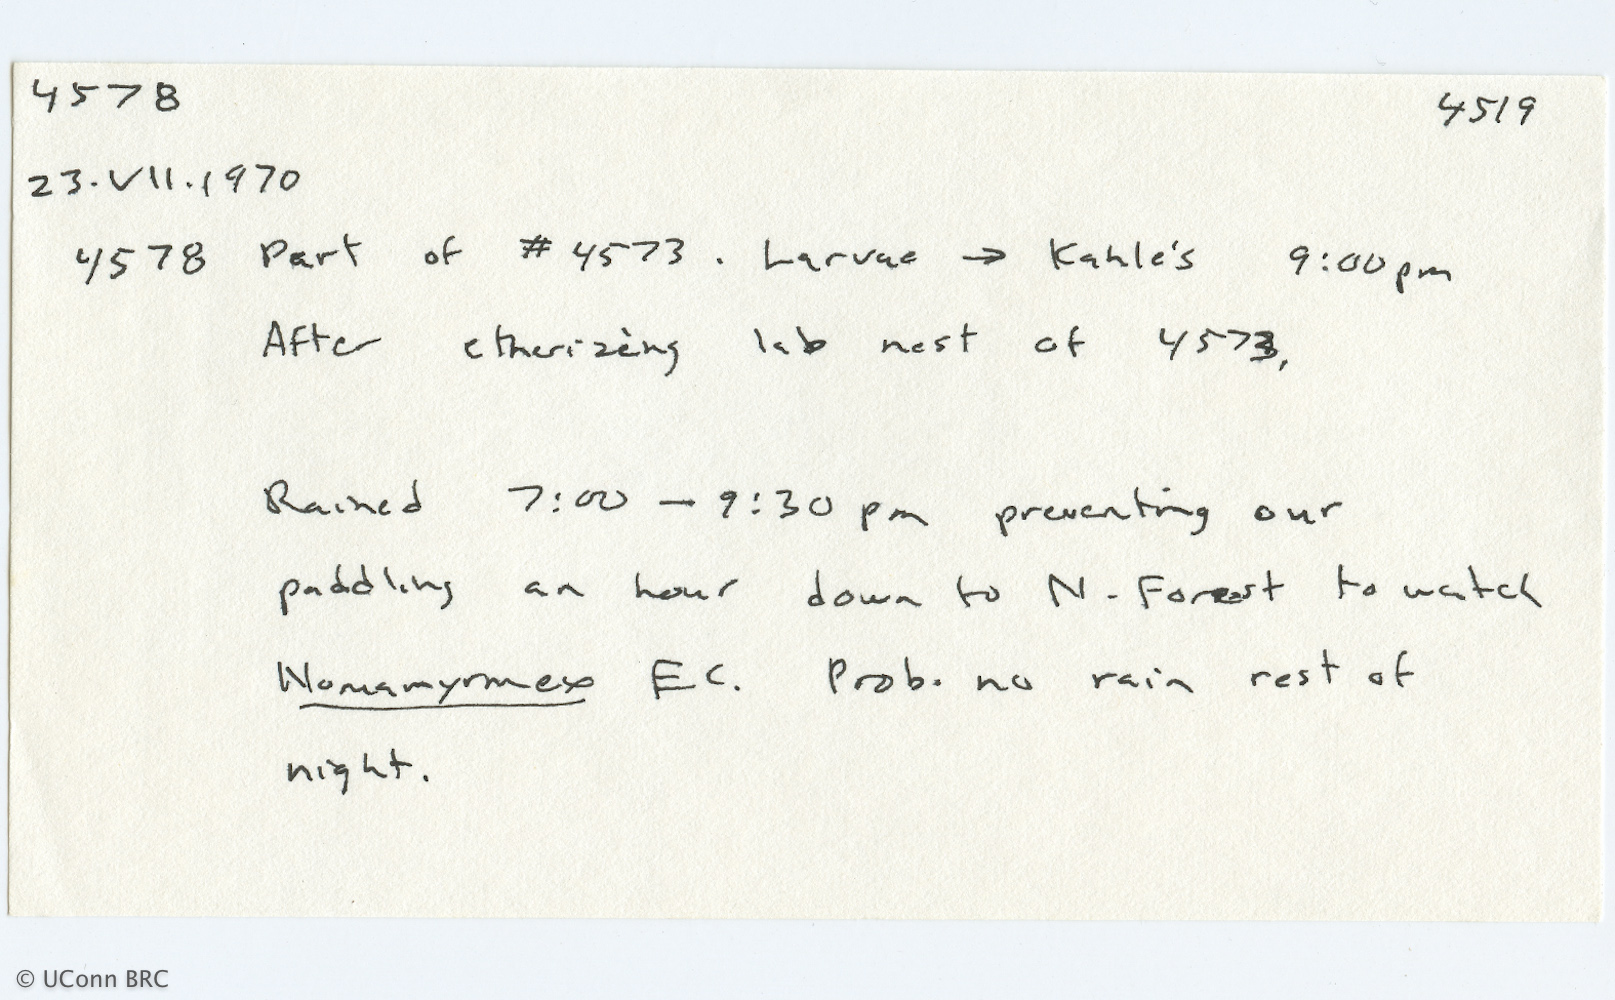 4578 4519
23.VII.1970
4578 Part of # 4573. Larvae → Kahle's 9:00pm
After etherizing lab nest of 4573,
Rained 7:00 – 9:30 pm preventing our
paddling an hour down to N. Forest to watch
Nomamyrmex EC. Prob. no rain rest of
night.
© UConn BRC